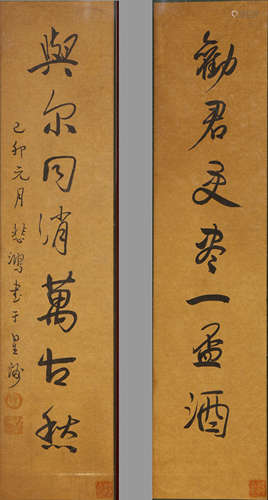 勸君更盡一盃酒
與尔同消萬古愁
己卯元月悲鴻書于星洲